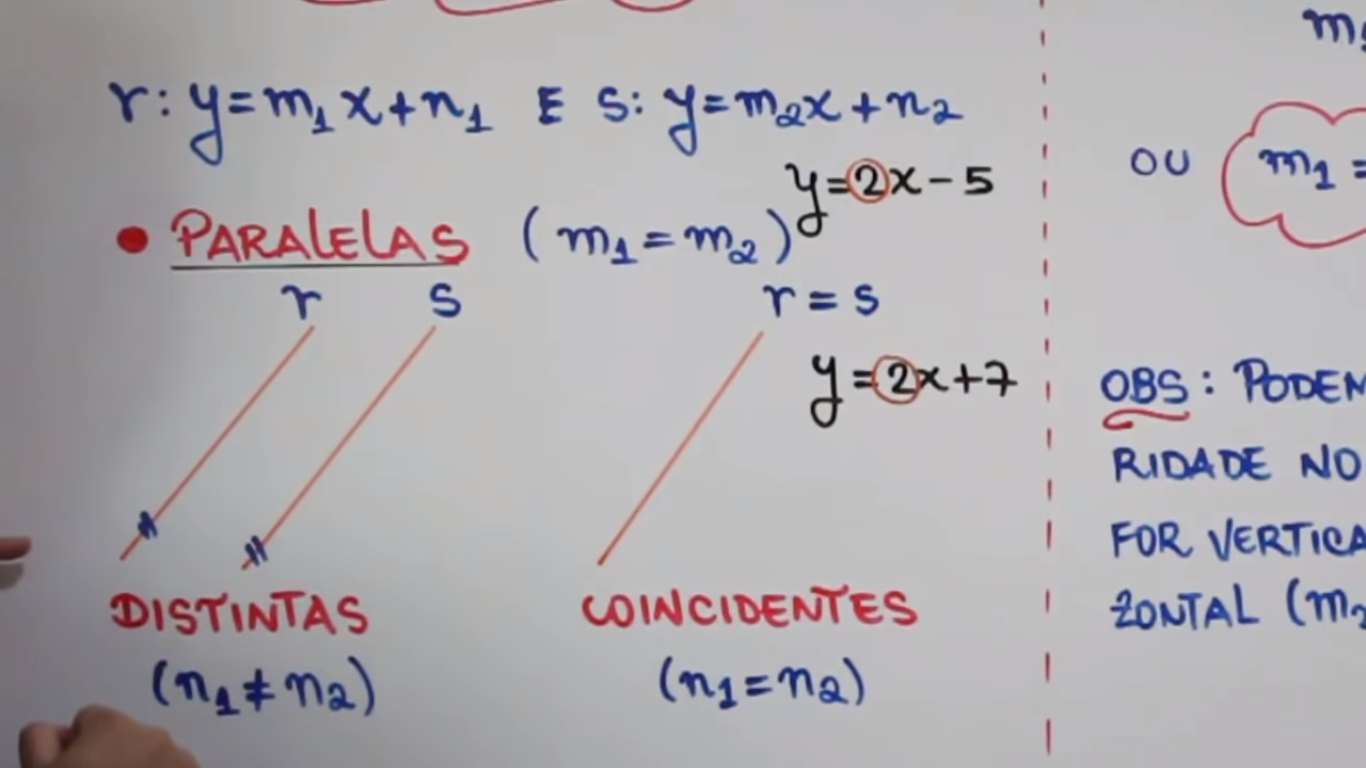 r: y=m₁x+n₁ E s: y=m₂x+n₂
y=2x-5
• PARALELAS (m₁=m₂)
r s
r=s
y=2x+7
DISTINTAS
(n₁≠n₂)
COINCIDENTES
(n₁=n₂)
OU m₁ =
OBS: PODEM
RIDADE NO
FOR VERTICA
ZONTAL (m₂